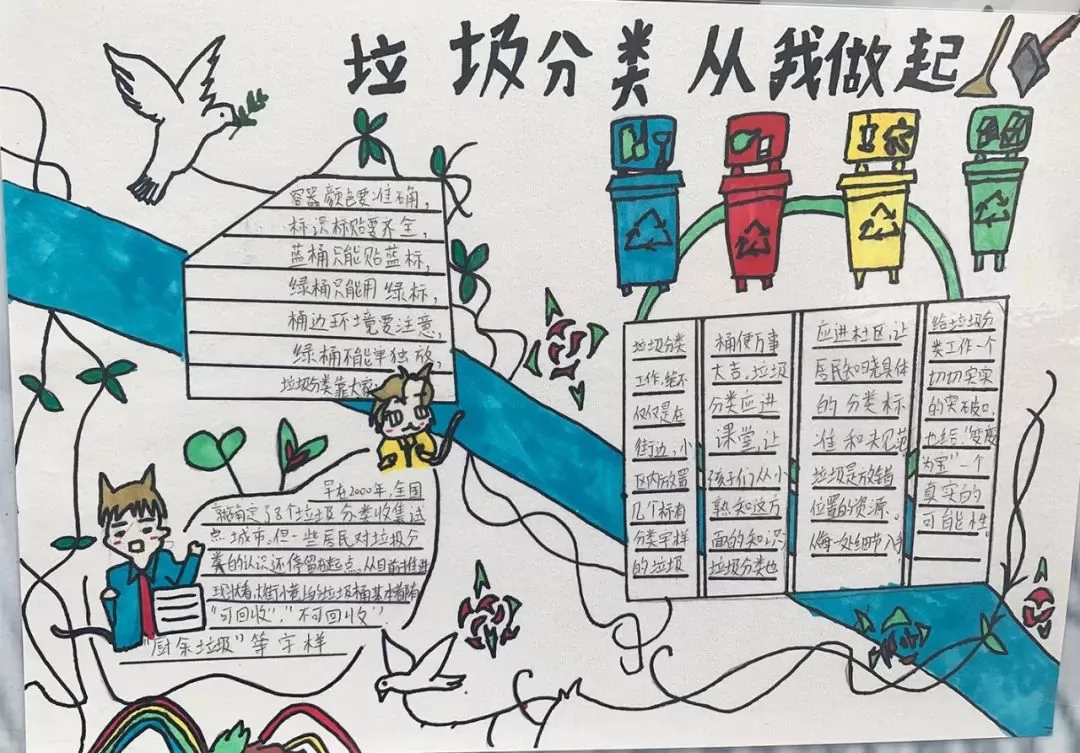 垃圾分类 从我做起
容器颜色要准确，
标识标贴要齐全，
蓝桶只能贴蓝标，
绿桶只能用绿标，
桶边环境要注意，
绿桶不能单独放，
垃圾分类靠大家
早在2000年，全国
就确定了8个垃圾分类收集试
点城市。但一些居民对垃圾分
类的认识还停留在起点。从目前推进
现状看，大街小巷上的垃圾桶基本都有
“可回收”，“不可回收”
“厨余垃圾”等字样
垃圾分类
工作，绝不
仅仅是在
街边，小
区内放置
几个标有
分类字样
的垃圾
桶便万事
大吉。垃圾
分类应进
课堂，让
孩子们从小
熟知这方
面的知识；
垃圾分类也
应进社区，让
居民知晓具体
的分类标
准和规范
垃圾是放错
位置的资源。
从每一处细节入手
给垃圾分
类工作一个
切切实实
的突破口，
也给“变废
为宝”一个
真实的
可能性。